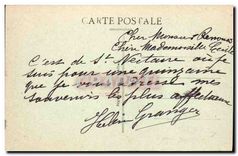 CARTE POSTALE
Cher Monsieur
Chère Mademoiselle
C'est de St Nectaire où je
suis pour une quinzaine
que je vous adresse mes
souvenirs les plus affectueux
Hélène Granger